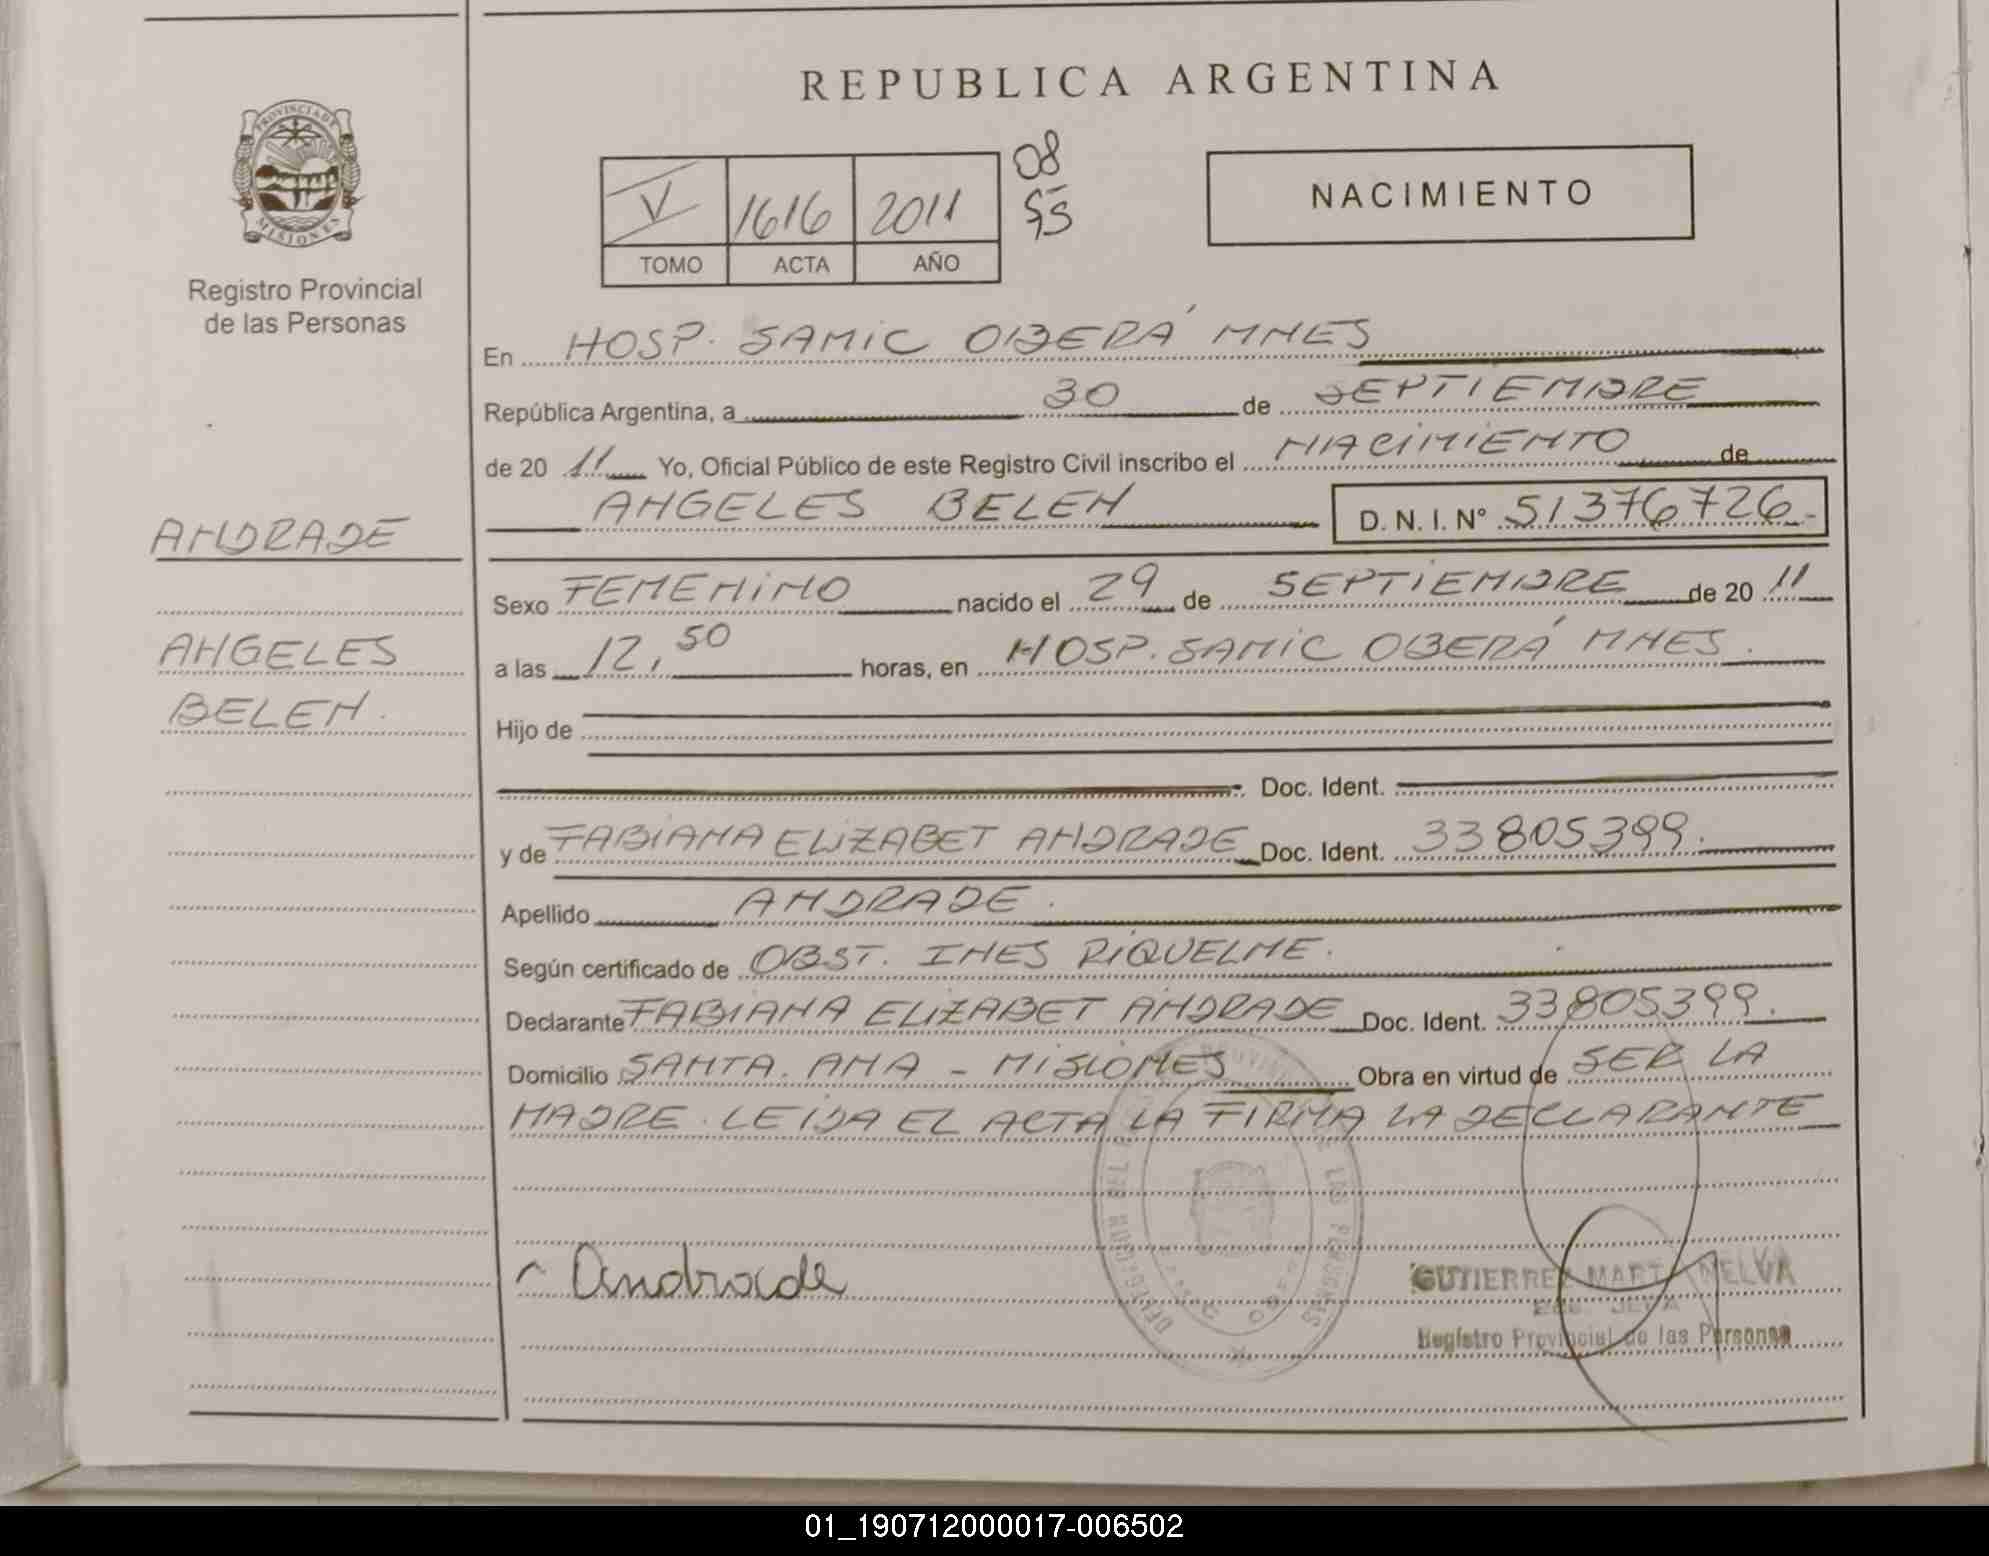 REPUBLICA ARGENTINA
PROVINCIA DE
MISIONES
Registro Provincial
de las Personas
V 1616 2011
TOMO ACTA AÑO
08
55
NACIMIENTO
En HOSP. SAMIC OBERÁ MNES
República Argentina, a 30 de SEPTIEMBRE
de 20 11 Yo, Oficial Público de este Registro Civil inscribo el NACIMIENTO de
ANGELES BELEN D. N. I. Nº 51376726.-
ANDRADE
ANGELES
BELEN.
Sexo FEMENINO nacido el 29 de SEPTIEMBRE de 20 11
a las 12,50 horas, en HOSP. SAMIC OBERÁ MNES.
Hijo de
Doc. Ident.
y de FABIANA ELIZABET ANDRADE Doc. Ident. 33805399.
Apellido ANDRADE.
Según certificado de OBST. INES RIQUELME.
Declarante FABIANA ELIZABET ANDRADE Doc. Ident. 33805399.
Domicilio SANTA. ANA - MISIONES Obra en virtud de SER LA
MADRE. LEIDA EL ACTA LA FIRMA LA DECLARANTE
Andrade
GUTIERREZ MART NELVA
JEFA
Registro Provincial de las Personas
01_190712000017-006502